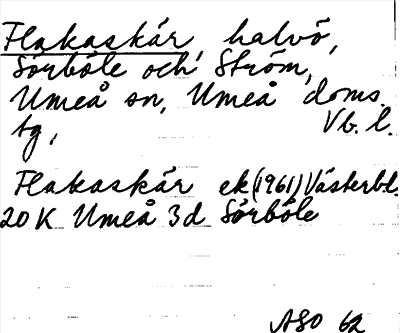 Flakaskär, halvö,
Sörböle och Ström,
Umeå sn, Umeå doms.
tg, Vb. l.
Flakaskär ek (1961) Västerb l.
20 K Umeå 3d Sörböle
ASO 62